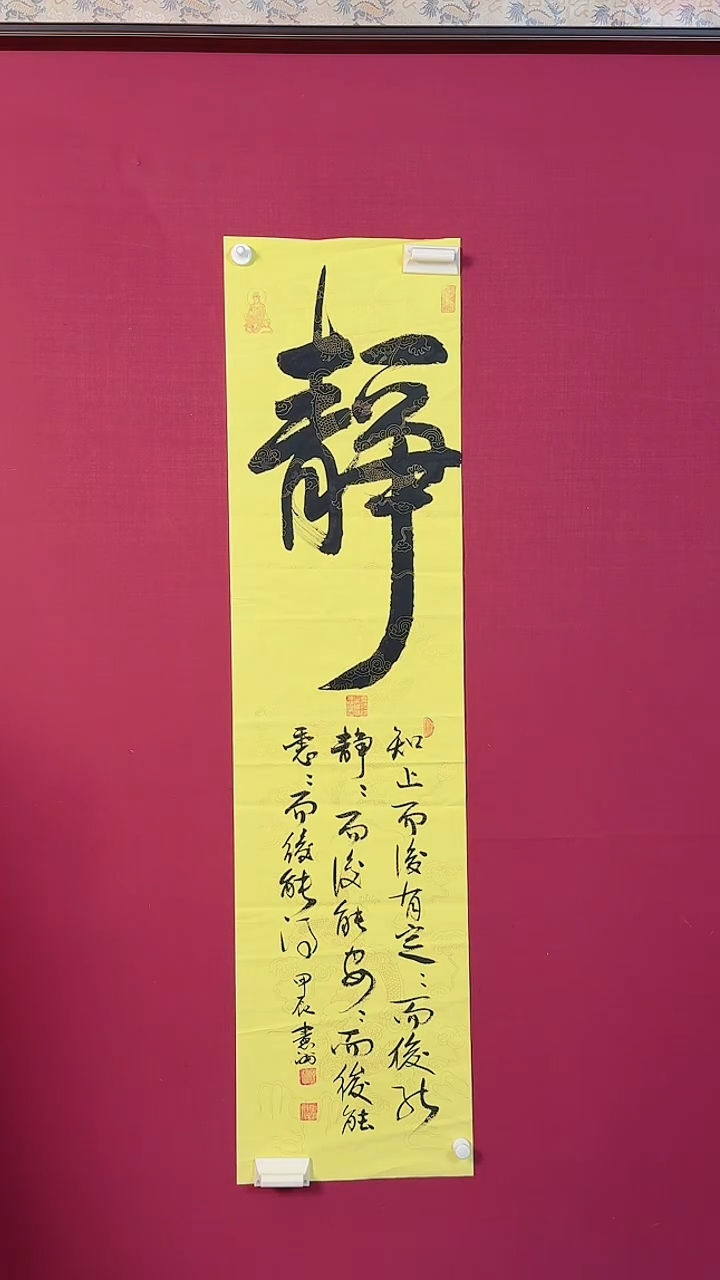 靜
知止而後有定〻而後能
靜〻而後能安〻而後能
慮〻而後能得
甲辰